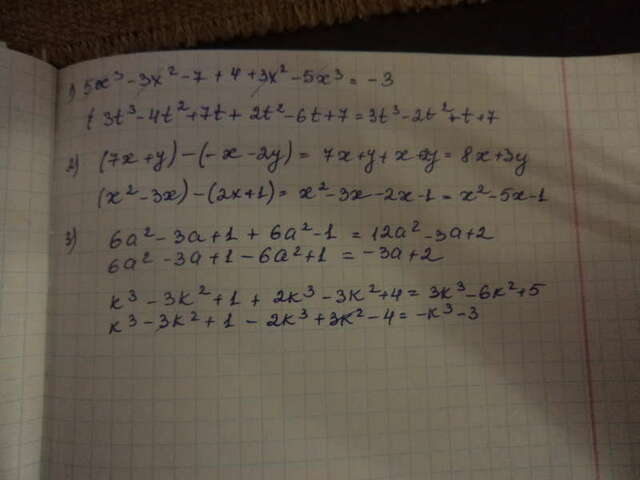 1) 5x³ - 3x² - 7 + 4 + 3x² - 5x³ = -3
3t³ - 4t² + 7t + 2t² - 6t + 7 = 3t³ - 2t² + t + 7
2) (7x + y) - (-x - 2y) = 7x + y + x + 2y = 8x + 3y
(x² - 3x) - (2x + 1) = x² - 3x - 2x - 1 = x² - 5x - 1
3) 6a² - 3a + 1 + 6a² - 1 = 12a² - 3a + 2
6a² - 3a + 1 - 6a² + 1 = -3a + 2
к³ - 3к² + 1 + 2к³ - 3к² + 4 = 3к³ - 6к² + 5
к³ - 3к² + 1 - 2к³ + 3к² - 4 = -к³ - 3